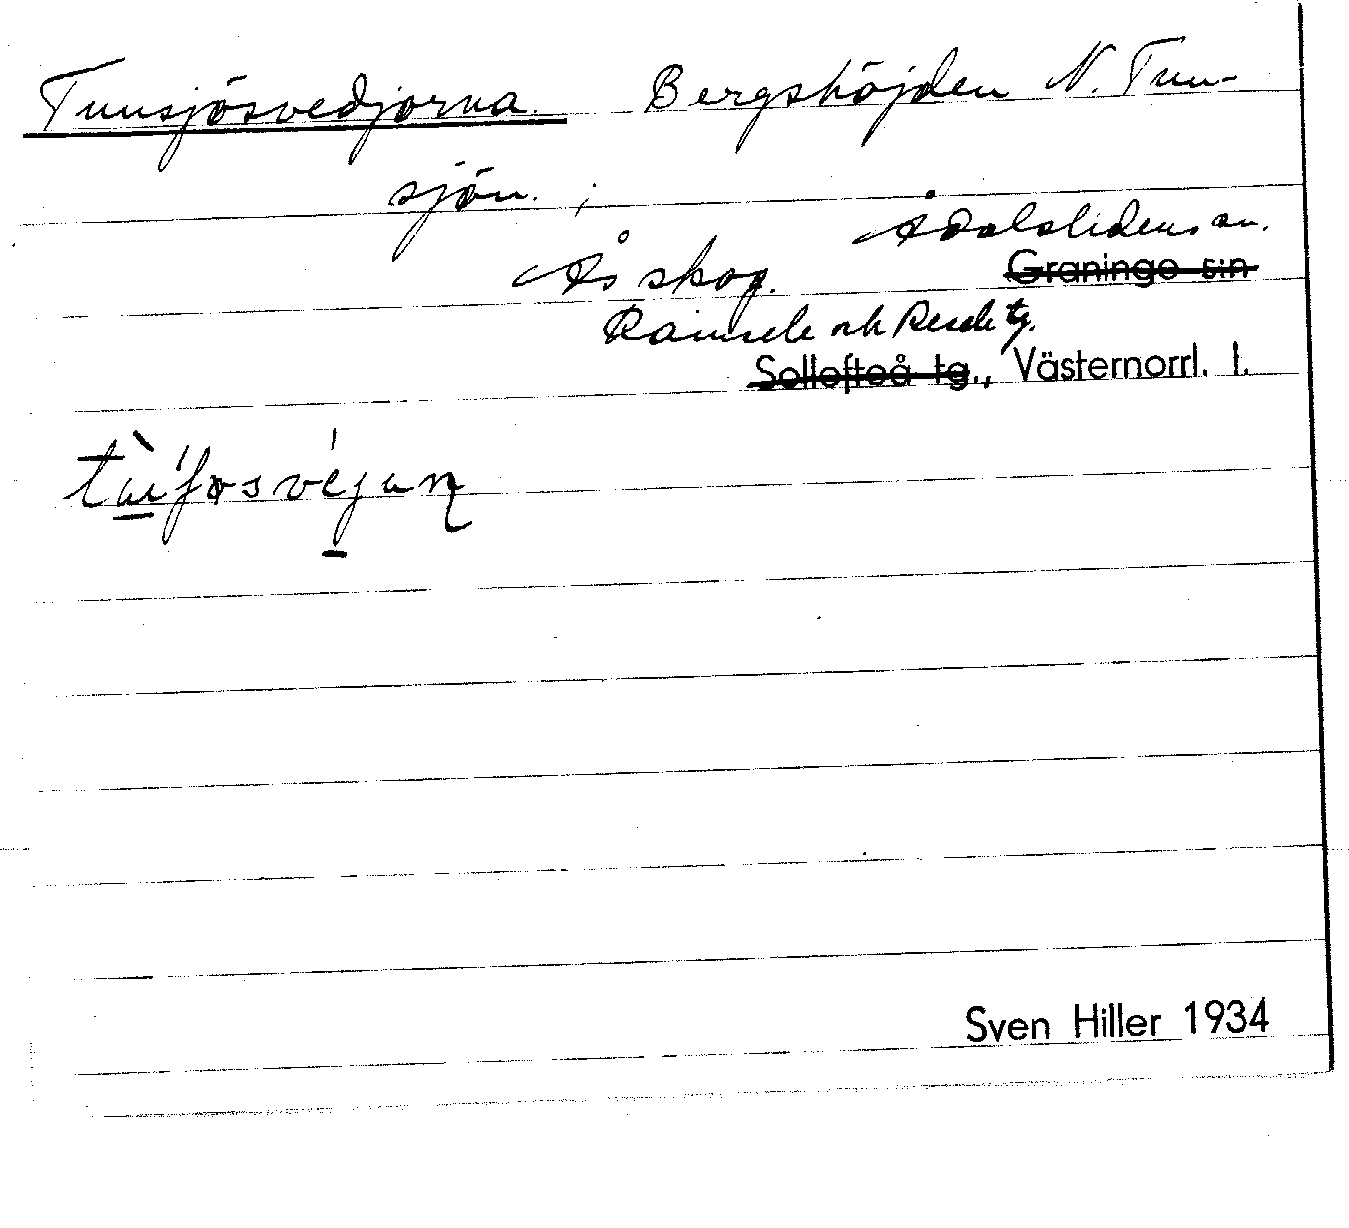 Tunsjösvedjorna. Bergshöjden N. Tun-
sjön. ;
Ådalslidens sn.
Ås skog. Graninge s:n
Ramsele och Resele tg.
Sollefteå tg., Västernorrl. l.
Sven Hiller 1934